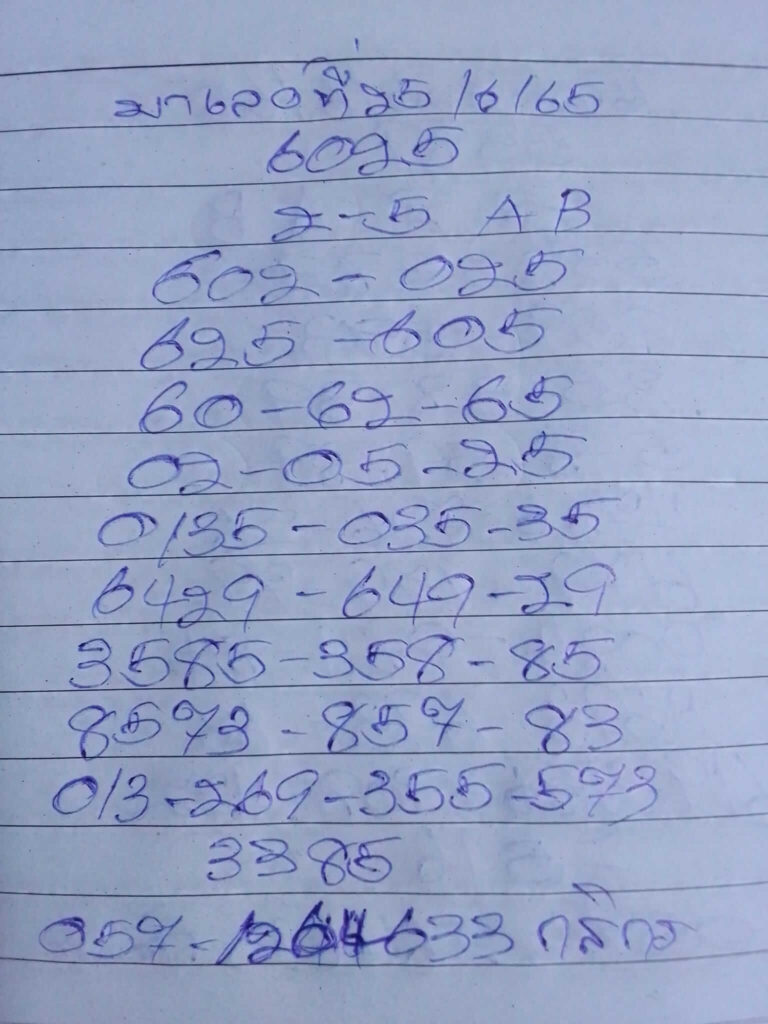 มาเลย์ที่ 25/6/65
6025
2-5 A B
602-025
625-605
60-62-65
02-05-25
0135-035-35
6429-649-29
3585-358-85
8573-857-83
013-269-355-573
3385
057- 633